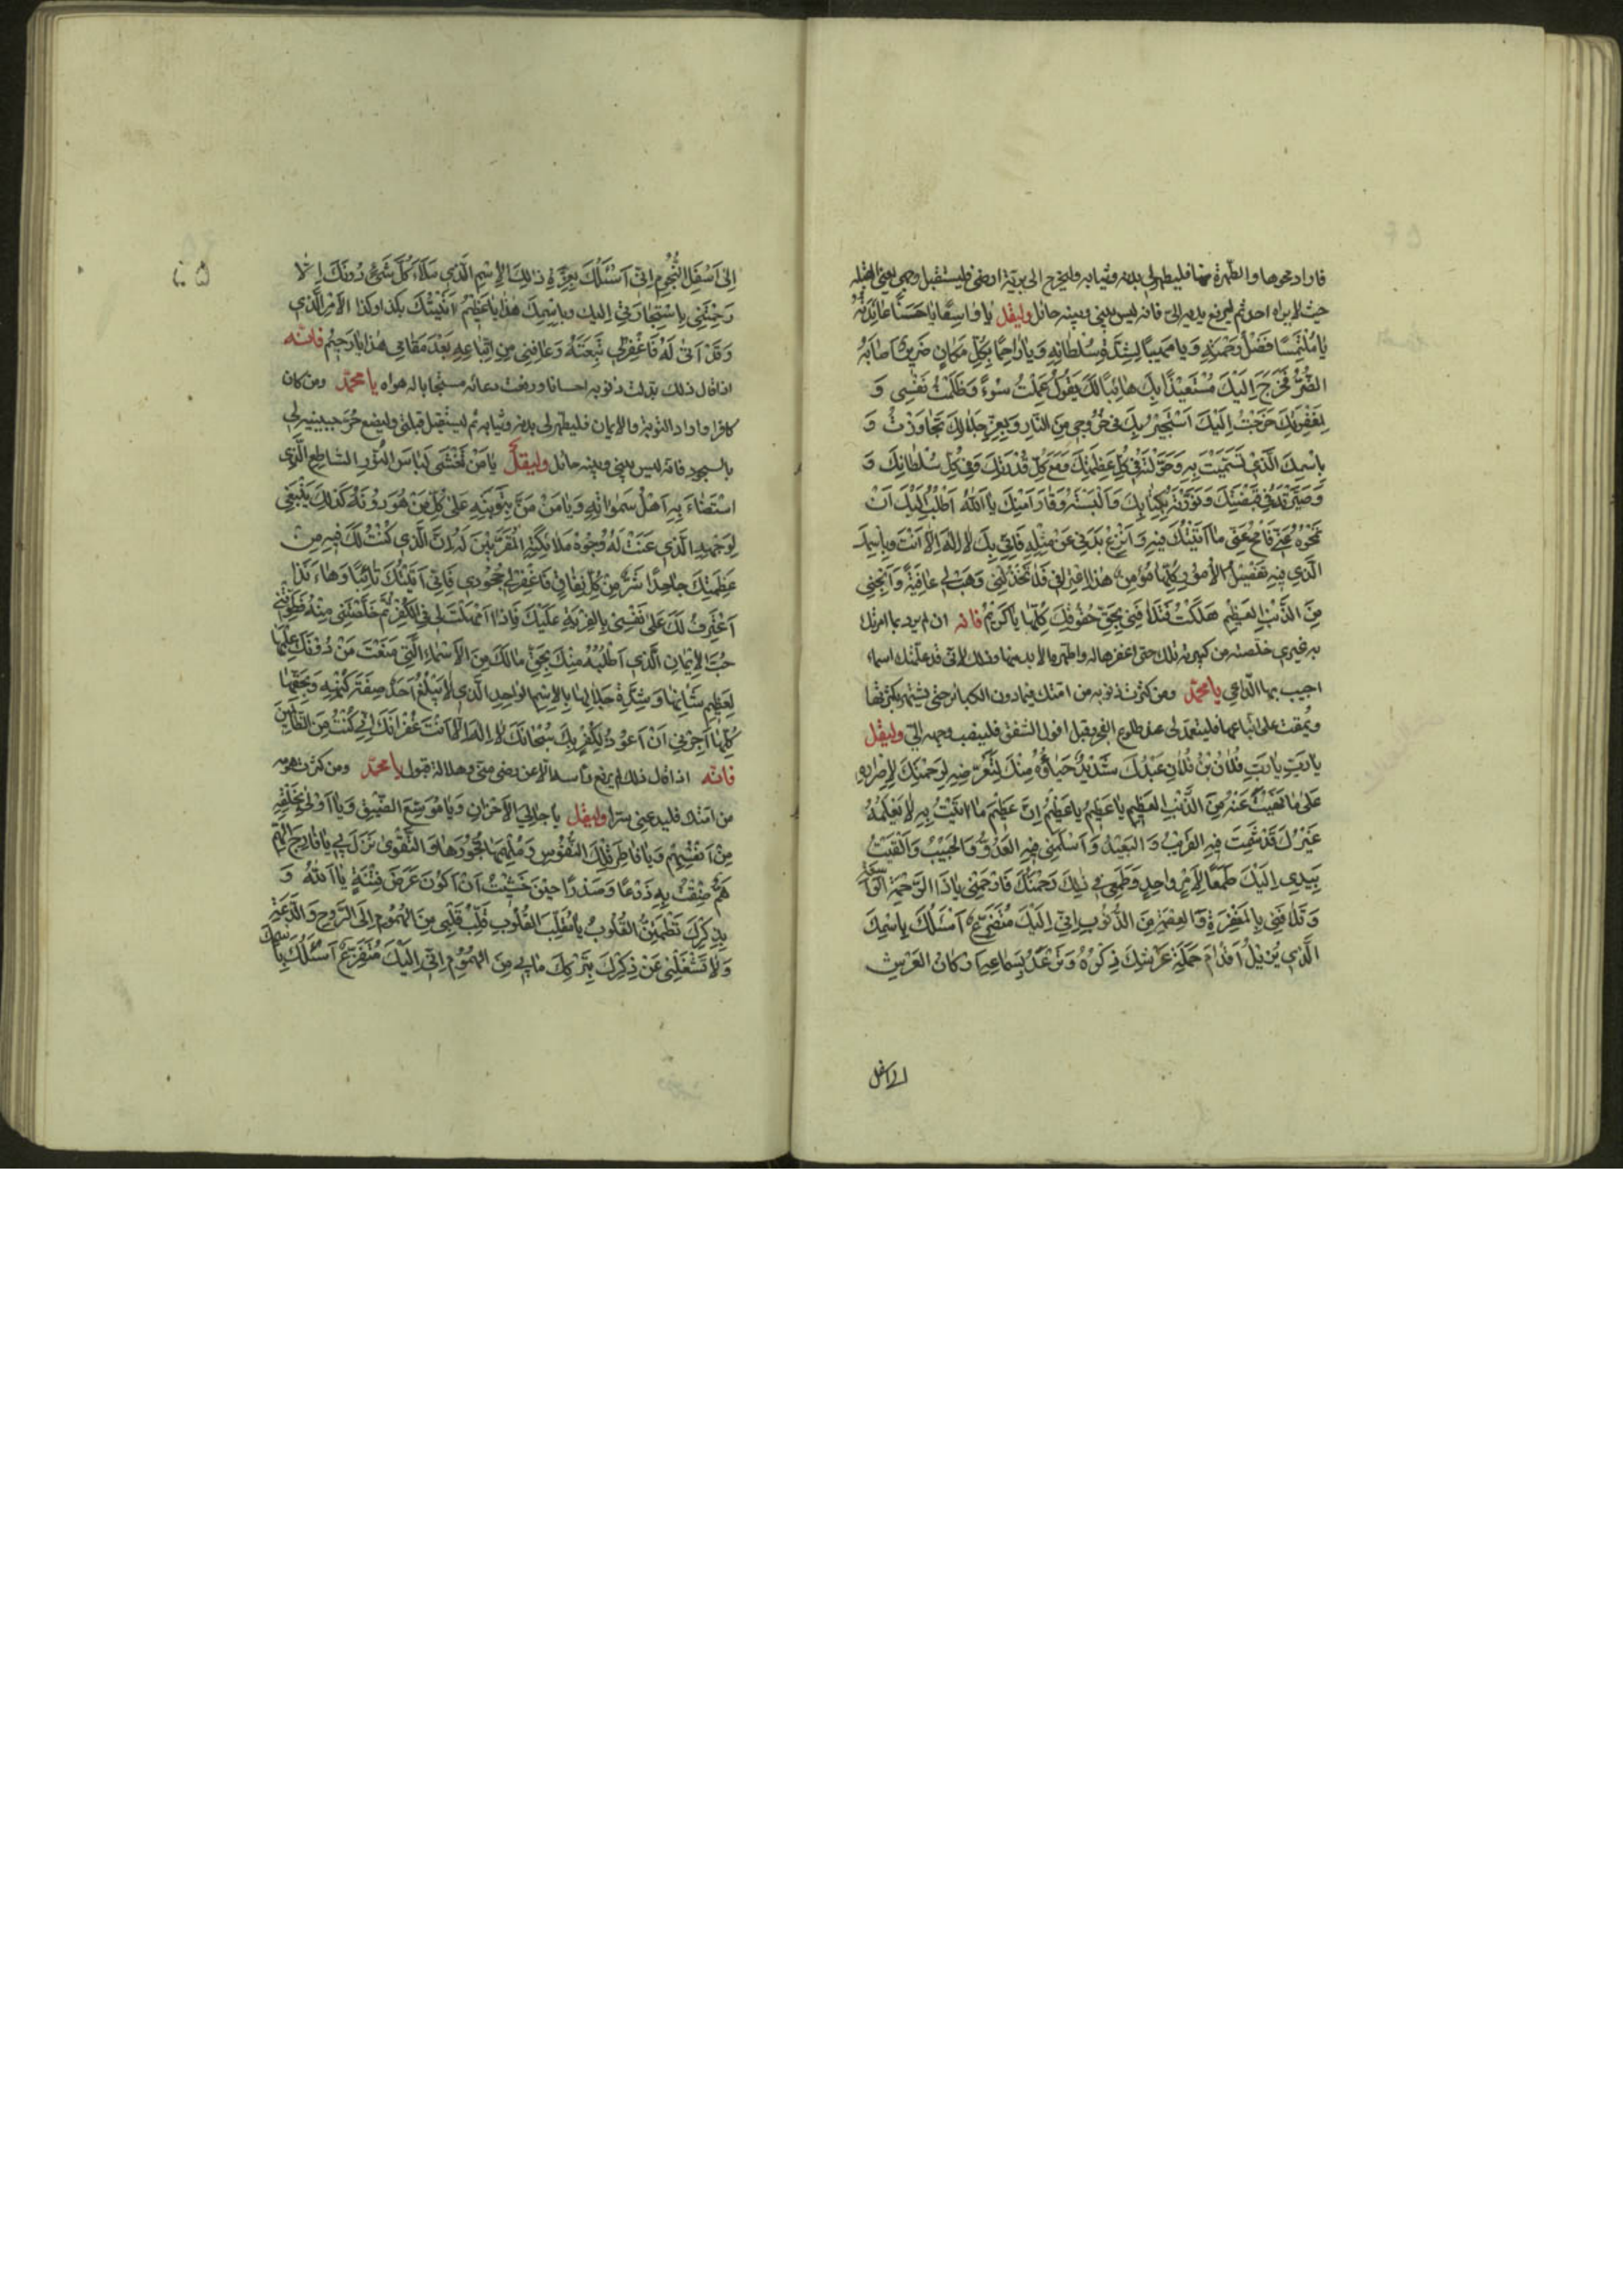 فاراد محوها والطهرة منها فليطهر لي بدنه وثيابه وليخرج الى برية ارضي فليستقبل وجهي يعني القبلة
حيث لا يراه احد ثم ليرفع يديه الي فانه ليس بيني وبينه حائل وليقل يا واسِعًا يا حَسَنًا عائِدَتُهُ
يا مُلْتَمَسًا فَضْلُ رَحْمَتِهِ وَيا مَهيبًا لِشِدَّةِ سُلْطانِهِ وَيا راحِمًا بِكُلِّ مَكانٍ ضَريرًا اَصابَهُ
الضُّرُّ فَخَرَجَ اِلَيْكَ مُسْتَعيذًا بِكَ هائِبًا لَكَ يَقُولُ عَمِلْتُ سُوءً وَظَلَمْتُ نَفْسي وَ
لِمَغْفِرَتِكَ خَرَجْتُ اِلَيْكَ اَسْتَجيرُ بِكَ في خُرُوجي مِنَ النّارِ وَبِعِزِّ جَلالِكَ تَجاوَزْتُ وَ
بِاسْمِكَ الَّذي تَسَمَّيْتَ بِهِ وَجَعَلْتَهُ في كُلِّ عَظَمَتِكَ وَمَعَ كُلِّ قُدْرَتِكَ وَفي كُلِّ سُلْطانِكَ وَ
وَصَيَّرْتَهُ في قَبْضَتِكَ وَنَوَّرْتَهُ بِكِتابِكَ وَاَلْبَسْتَهُ وَقارًا مِنْكَ يا اَللهُ اَطْلُبُ اِلَيْكَ اَنْ
تَمْحُوَهُ عَنّي فَامْحُ عَنّي ما اَتَيْتُكَ فيهِ وَانْزَعْ بَدَني عَنْ مِثْلِهِ فَاِنّي بِكَ لا اِلهَ اِلّا اَنْتَ وَبِاسْمِكَ
الَّذي فيهِ تَفْصيلُ الْاُمُورِ كُلِّها مُؤْمِنٌ هذا اعْتِرافي فَلا تَخْذُلْني وَهَبْ لي عافِيَةً وَاَنْجِني
مِنَ الذَّنْبِ العَظيمِ هَلَكْتُ فَتَلافَني بِحَقِّ حُقُوقِكَ كُلِّها يا كَريمُ فانه ان لم يرد بما امرتك
به غيري خلصته من كبيرته تلك حتى اغفرها له واطهره الابد منها وذلك لاني قد علمتك اسماء
اجيب بها الداعي يا محمد ومن كثرت ذنوبه من امتك فيما دون الكبائر حتى يشتهر بكثرتها
ويمقت على اتباعها فليتعمد لي عند طلوع الفجر وقبل افول الشفق فلينصب وجهه الي وليقل
يا رَبِّ يا رَبِّ فُلانُ بْنُ فُلانٍ عَبْدُكَ شَديدٌ حَياؤُهُ مِنْكَ لِتَعَرُّضِهِ لِرَحْمَتِكَ لِاِصْرارِهِ
عَلى ما نَهَيْتَ عَنْهُ مِنَ الذَّنْبِ العَظيمِ يا عَظيمُ يا عَظيمُ اِنَّ عَظيمَ ما اَتَيْتُ بِهِ لا يَعْلَمُهُ
غَيْرُكَ قَدْ شَمِتَ فيهِ القَريبُ وَ البَعيدُ وَاَسْلَمَني فيهِ العَدُوُّ وَالحَبيبُ وَاَلْقَيْتُ
بِيَدي اِلَيْكَ طَمَعًا لِاَمْرٍ واحِدٍ وَطَمَعي في ذلِكَ رَحْمَتُكَ فَارْحَمْني يا ذَا الرَّحْمَةِ الواسِعَةِ
وَتَلافَني بِالمَغْفِرَةِ وَالعِصْمَةِ مِنَ الذُّنُوبِ اِنّي اِلَيْكَ مُتَضَرِّعٌ اَسْئَلُكَ بِاسْمِكَ
الَّذي يُزيلُ اَقْدامَ حَمَلَةِ عَرْشِكَ ذِكْرُهُ وَتُرْعَدُ لِسَماعِهِ اَرْكانُ العَرْشِ
الى اسفل
۲۵
اِلى اَسْفَلِ التُّخُومِ اِنّي اَسْئَلُكَ بِعِزَّةِ ذلِكَ الْاِسْمِ الَّذي مَلَأَ كُلَّ شَيْءٍ دُونَكَ اِلّا
رَحِمْتَني بِاسْتِجارَتي اِلَيك وَبِاسْمِكَ هذا يا عَظيمُ اَتَيْتُكَ بِكَذا وكذا الاَمْرِ الَّذي
وَقَدْ اَتى لَهُ فَاغْفِرْلي تَبِعَتَهُ وَعافِني مِنِ اتِّباعِهِ بَعْدَ مَقامي هذا يا رَحيمُ فانه
اذا قال ذلك بدلت ذنوبه احسانا ورفعت دعائه مستجابا له هواه يا محمد ومن كان
كافرا واراد التوبة والايمان فليطهر لي بدنه وثيابه ثم ليستقبل قبلتي وليضع حر جبينه لي
بالسجود فانه ليس بيني وبينه حائل وليقل يا مَنْ تَغَشّى لِباسَ النُّورِ السّاطِعِ الَّذي
اسْتَضاءَ بِهِ اَهْلُ سَمواتِهِ وَيا مَنْ خَزَنَ رُؤْيَتَهُ عَلى كُلِّ مَنْ هُوَ دُونَهُ كَذلِكَ يَنْبَغي
لِوَجْهِهِ الَّذي عَنَتْ لَهُ وُجُوهُ مَلائِكَتِهِ المُقَرَّبينَ لَهُ اِنَّ الَّذي كُنْتُ لَكَ فيهِ مِنْ
عَظَمَتِكَ جاحِدًا شَرٌّ مِنْ كُلِّ نِفاقٍ فَاغْفِرْ لي جُحُودي فَاِنّي اَتَيْتُكَ تائِبًا وَها اَنَا ذا
اَعْتَرِفُ لَكَ عَلى نَفْسي بِالفِرْيَةِ عَلَيْكَ فَاِذا اَمْهَلْتَ لي في الكُفْرِ ثُمَّ خَلَّصْتَني مِنْهُ فَطَوِّقْني
حُبَّ الْايمانِ الَّذي اَطْلُبُهُ مِنْكَ بِحَقِّ مالَكَ مِنَ الْاَسْماءِ الَّتي مَنَعْتَ مَنْ دُونَكَ عِلْمَها
لِعَظيمِ شَانِها وَشِدَّةِ جَلالِها بِالْاِسْمِ الواحِدِ الَّذي لا يَبْلُغُ اَحَدٌ صِفَةَ كُنْهِهِ وَبِحَقِّها
كُلِّها اَجِرْني اَنْ اَعُودَ لِكُفْرٍ بِكَ سُبْحانَكَ لا اِلهَ اِلّا اَنْتَ غُفْرانَكَ اِنّي كُنْتُ مِنَ الظّالِمينَ
فانه اذا قال ذلك لم يرفع رأسه الا عن رضى مني وهذا له قبول يا محمد ومن كثرت همومه
من امتك فليدعني سرا وليقل يا جالِيَ الْاَحْزانِ وَيا مُوَسِّعَ الضّيقِ وَيا اَوْلى بِخَلْقِهِ
مِنْ اَنْفُسِهِمْ وَيا فاطِرَ تِلْكَ النُّفُوسِ وَمُلْهِمَها فُجُورَها وَالتَّقْوى نَزَلَ بي يا فارِجَ الهَمِّ
هَمٌّ ضِقْتُ بِهِ ذَرْعًا وَصَدْرًا حينَ خَشيتُ اَنْ اَكُونَ عَرَضَ فِتْنَةٍ يا اَللهُ وَ
بِذِكْرِكَ تَطْمَئِنُّ القُلُوبُ يا مُقَلِّبَ القُلُوبِ قَلِّبْ قَلْبي مِنَ الهُمُومِ اِلَى الرَّوْحِ وَالدَّعَةِ
وَلا تَشْغَلْني عَنْ ذِكْرِكَ بِتَرْكِكَ ما بي مِنَ الهُمُومِ اِنّي اِلَيْكَ مُتَضَرِّعٌ اَسْئَلُكَ بِاسْمِكَ